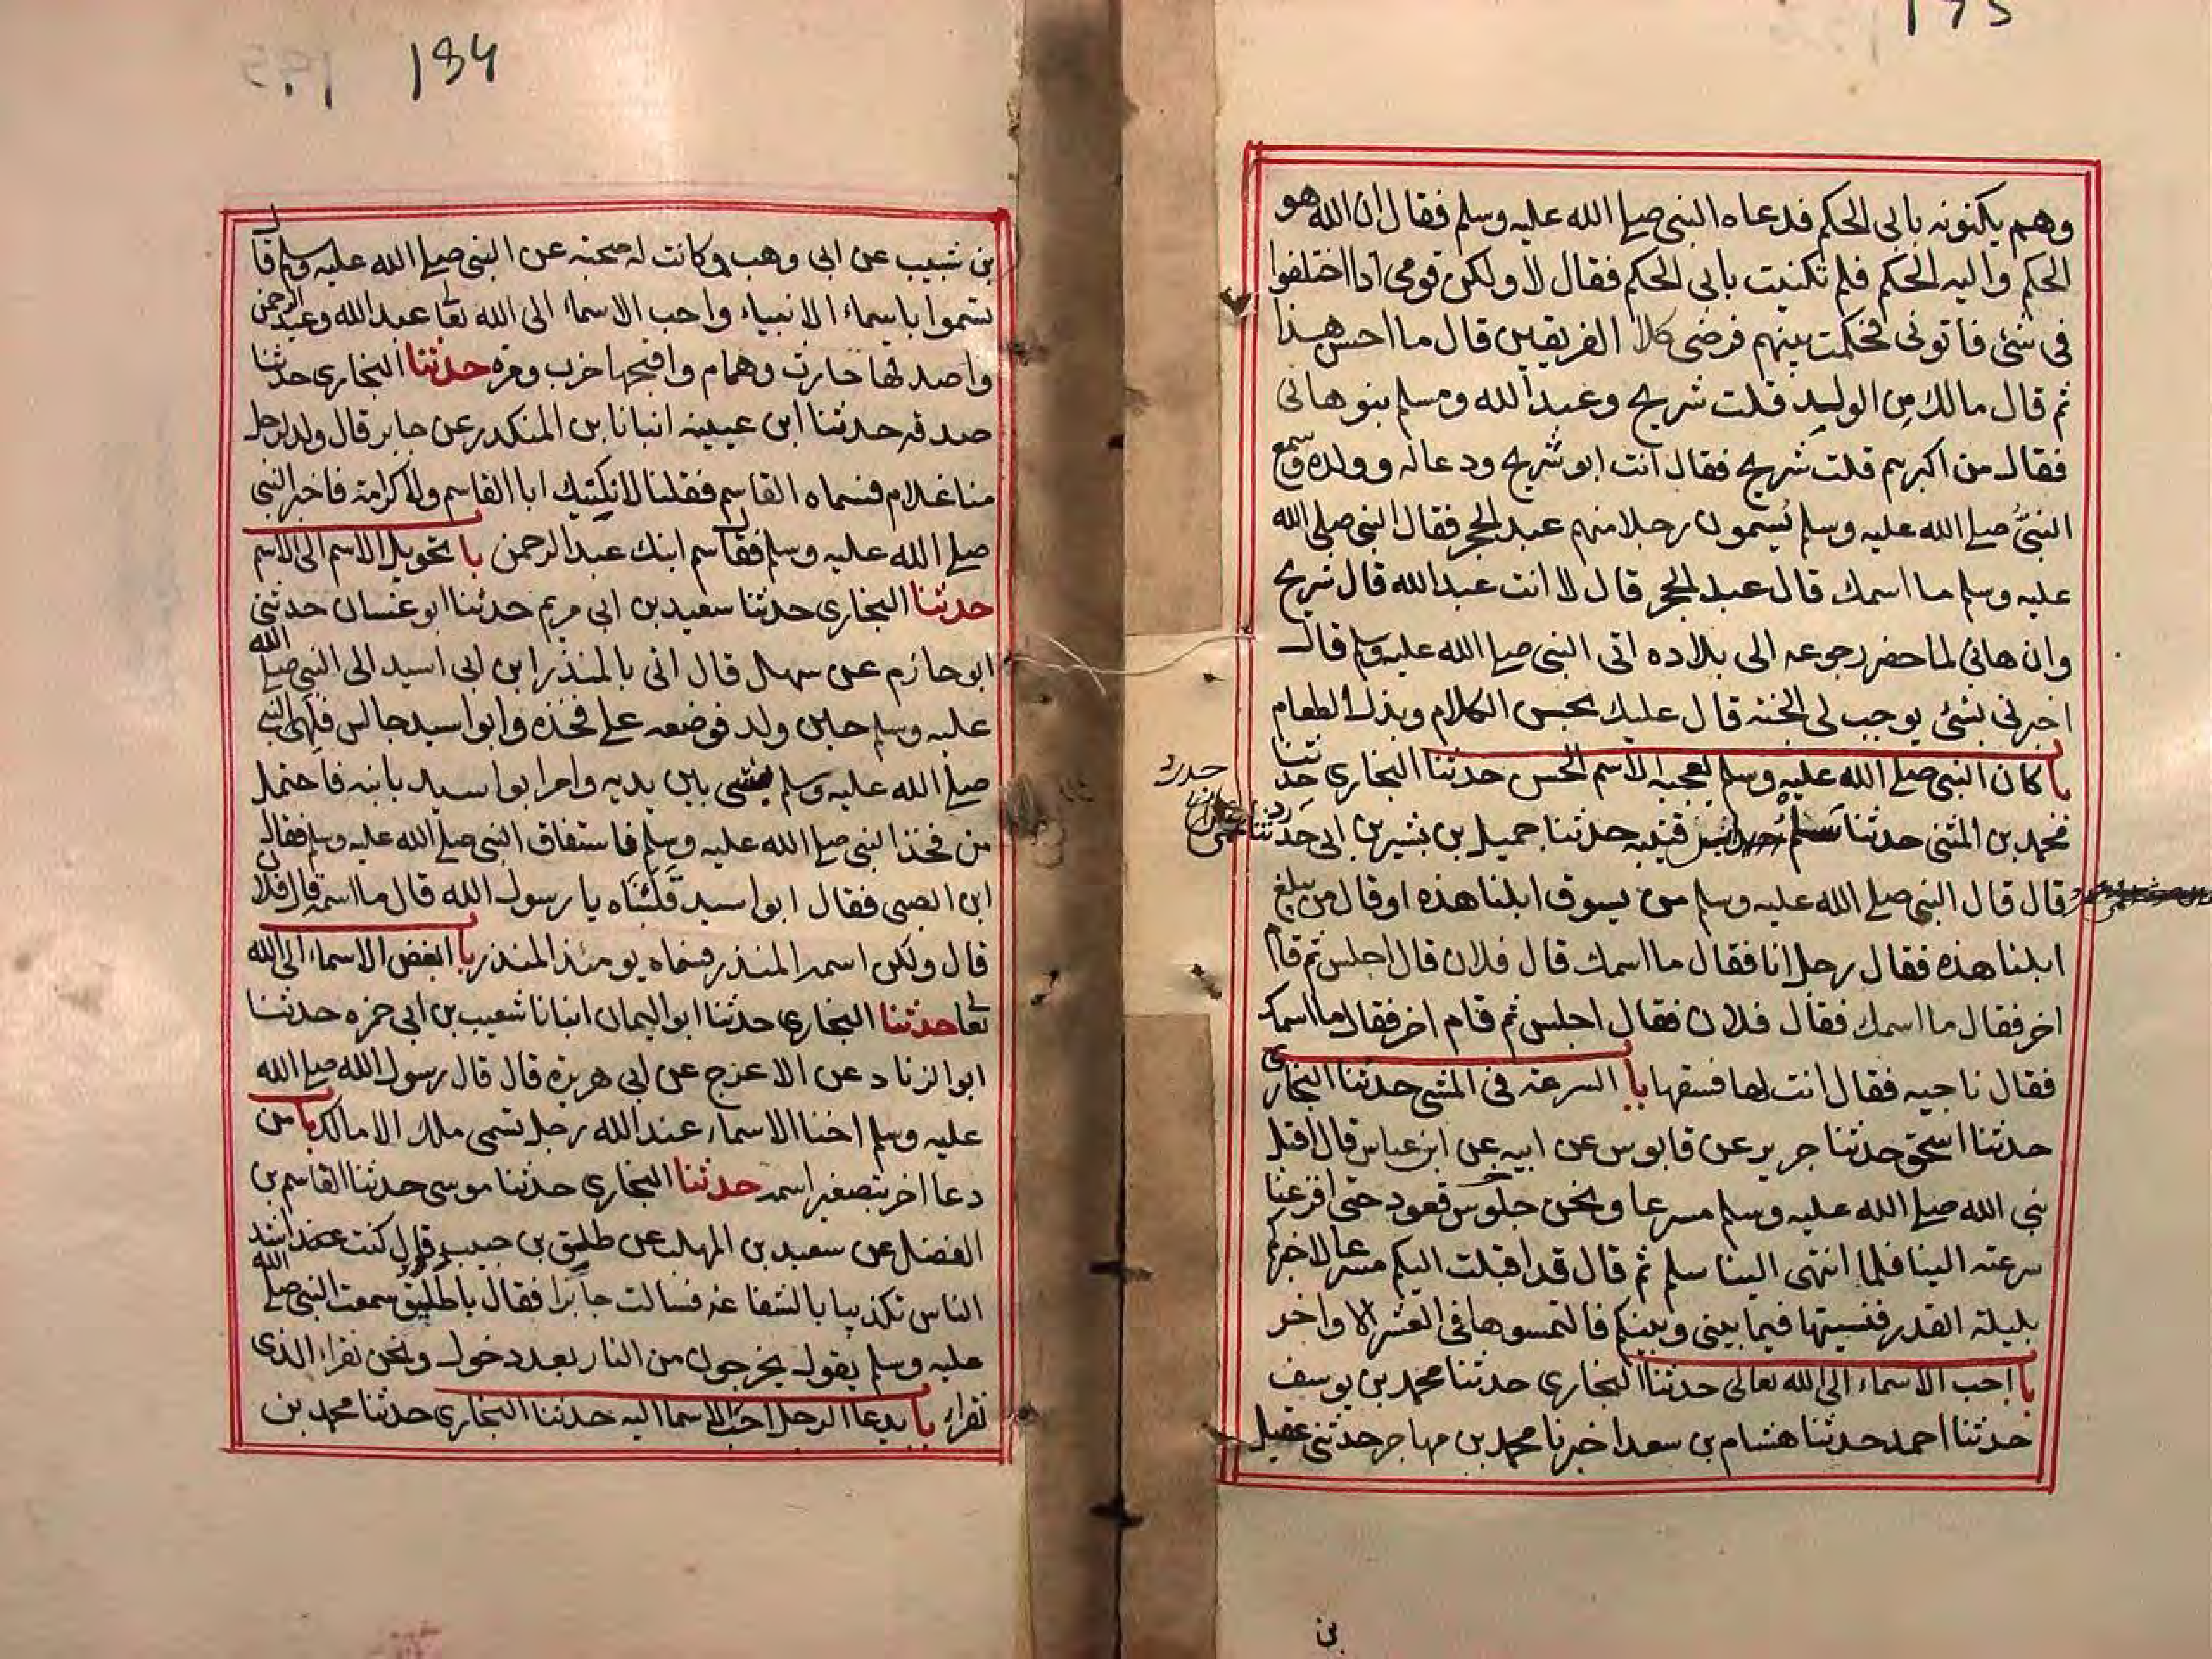 وهم يكنونه بابى الحكم فدعاه النبى صلے الله عليه وسلم فقال ان الله هو
الحكم واليه الحكم فلم تكنيت بابى الحكم فقال لا ولكن قومى اذا اختلفوا
فى شئ فاتونى فحكمت بينهم فرضى كلا الفريقين قال ما احسن هذا
ثم قال مالك من الولد قلت شريح وعبد الله ومسلم بنو هانى
فقال من اكبرهم قلت شريح فقال انت ابو شريح ودعا له وولده وسمع
النبى صلے الله عليه وسلم يسمون رجلا منهم عبد الحجر فقال النبى صلى الله
عليه وسلم ما اسمك قال عبد الحجر قال لا انت عبد الله قال شريح
وان هانى لما حضر رجوعه الى بلاده اتى النبى صلے الله عليه وسلم قال
اخبرنى بشئ يوجب لى الجنة قال عليك بحسن الكلام وبذل الطعام
با كان النبى صلے الله عليه وسلم يعجبه الاسم الحسن حدثنا البخارى حدثنا
محمد بن المثنى حدثنا سلم بن قتيبه حدثنا حميل بن بشير بن ابى حدرد
قال قال النبى صلے الله عليه وسلم من يسوق ابلنا هذه او قال من يبلغ
ابلنا هذه فقال رجل انا فقال ما اسمك قال فلان قال اجلس ثم قام
اخر فقال ما اسمك فقال فلان فقال اجلس ثم قام اخر فقال ما اسمك
فقال ناجيه فقال انت لها فسقها با السرعة فى المشى حدثنا البخارى
حدثنا اسحق حدثنا جرير عن قابوس عن ابيه عن ابن عباس قال اقبل
نبى الله صلے الله عليه وسلم مسرعا ونحن جلوس قعود حتى افزعنا
سرعته الينا فلما انتهى الينا سلم ثم قال قد اقبلت اليكم مسرعا لاخبركم
بليلة القدر فنسيتها فيما بينى وبينكم فالتمسوها فى العشر الاواخر
با احب الاسماء الى الله تعالى حدثنا البخارى حدثنا محمد بن يوسف
حدثنا احمد حدثنا هشام بن سعد اخبرنا محمد بن مهاجر حدثنى عقيل
بن
184
بن شبيب عن ابى وهب وكانت له صحبة عن النبى صلے الله عليه وسلم قال
تسموا باسماء الانبياء واحب الاسماء الى الله تعا عبد الله وعبد الرحمن
واصدقها حارث وهمام واقبحها حرب ومره حدثنا البخارى حدثنا
صدقه حدثنا ابن عيينه انبانا بن المنكدر عن جابر قال ولد لرجل
منا غلام فسماه القاسم فقلنا لا نكنيك ابا القاسم ولا كرامة فاخبر النبى
صلے الله عليه وسلم فقال سم ابنك عبد الرحمن با تحويل الاسم الى الاسم
حدثنا البخارى حدثنا سعيد بن ابى مريم حدثنا ابو غسان حدثنى
ابو حازم عن سهل قال اتى بالمنذر ابن ابى اسيد الى النبى صلے الله
عليه وسلم حين ولد فوضعه على فخذه وابو اسيد جالس فلهى النبى
صلے الله عليه وسلم بشى بين يديه وامر ابو اسيد بابنه فاحتمل
من فخذ النبى صلے الله عليه وسلم فاستفاق النبى صلے الله عليه وسلم فقال
اين الصبى فقال ابو اسيد قلبناه يا رسول الله قال ما اسمه قال فلان
قال ولكن اسمه المنذر فسماه يومئذ المنذر با ابغض الاسماء الى الله
تعا حدثنا البخارى حدثنا ابو اليمان انبانا شعيب بن ابى حمزه حدثنا
ابو الزناد عن الاعرج عن ابى هريرة قال قال رسول الله صلے الله
عليه وسلم اخنا الاسماء عند الله رجل تسمى ملك الاملاك با من
دعا اخر بتصغير اسمه حدثنا البخارى حدثنا موسى حدثنا القاسم بن
الفضل عن سعيد بن المهلب عن طليق بن حبيب قال كنت اشد
الناس تكذيبا بالشفاعة فسالت جابرا فقال يا طليق سمعت النبى صلے الله
عليه وسلم يقول يخرجون من النار بعد دخول ونحن نقراء الذى
نقراء با يدعا الرجل احب الاسما اليه حدثنا البخارى حدثنا محمد بن